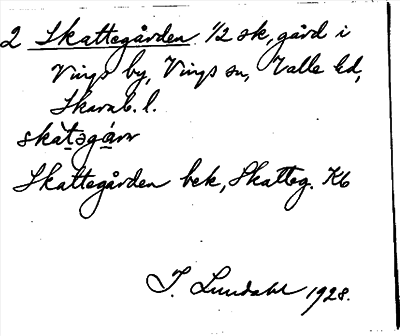 2 Skattegården 1/2 sk, gård i
Vings by, Vings sn, Valle hd,
Skarab. l.
skatəgáɳ
Skattegården bek, Skatteg. Kb
I. Lundahl 1928.